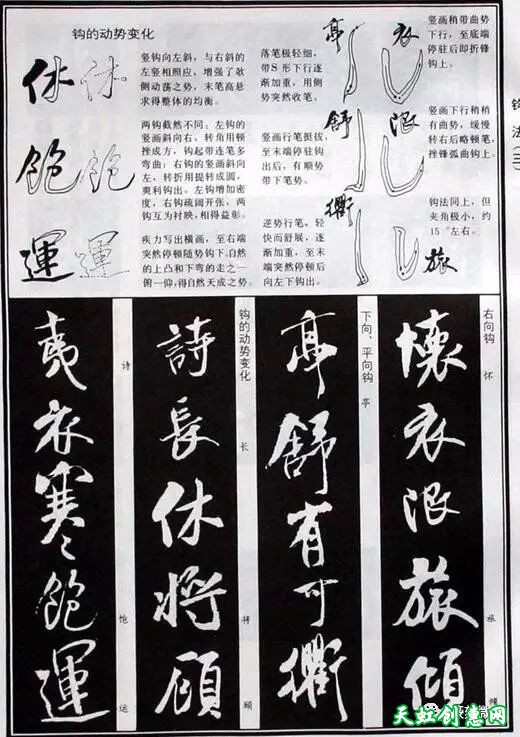 钩的动势变化
休
竖钩向左斜，与右斜的
左竖相照应，增强了欹
侧动荡之势，末笔高悬
求得整体的均衡。
飽
两钩截然不同：左钩的
竖画斜向右，转角用顿
挫成方，钩起带连笔多
弯曲；右钩的竖画斜向
左，转折用提转成圆，
奥利钩出。左钩增加密
度，右钩疏阔开张，两
钩互为封映，相得益彰。
運
疾力写出横画，至右端
突然停顿随势钩下。自然
的上凸和下弯的走之一
俯一仰，得自然天成之势。
落笔极轻细，
带S形下行逐
渐加重，用侧
势突然收笔。
亭
竖画行笔挺拔，
至末端停驻钩
出后，有顺势
带下笔势。
舒
逆势行笔。轻
快而舒展，逐
渐加重，至末
端突然停顿后
向左下钩出。
衢
竖画稍带曲势
下行，至底端
停驻后即折锋
钩上。
衣
竖画下行稍稍
有曲势，缓慢
转右后略顿笔，
挫锋弧曲钩上。
限
钩法同上，但
夹角极小，约
15°左右。
旅
钩
法
(二)
右向钩 怀
懷衣限旅傾
旅
下向、平向钩 亭
亭舒有可衢
钩的动势变化
長
詩長休將顧
将
顾
诗
夷衣寒飽運
饱
运
天虹创意网